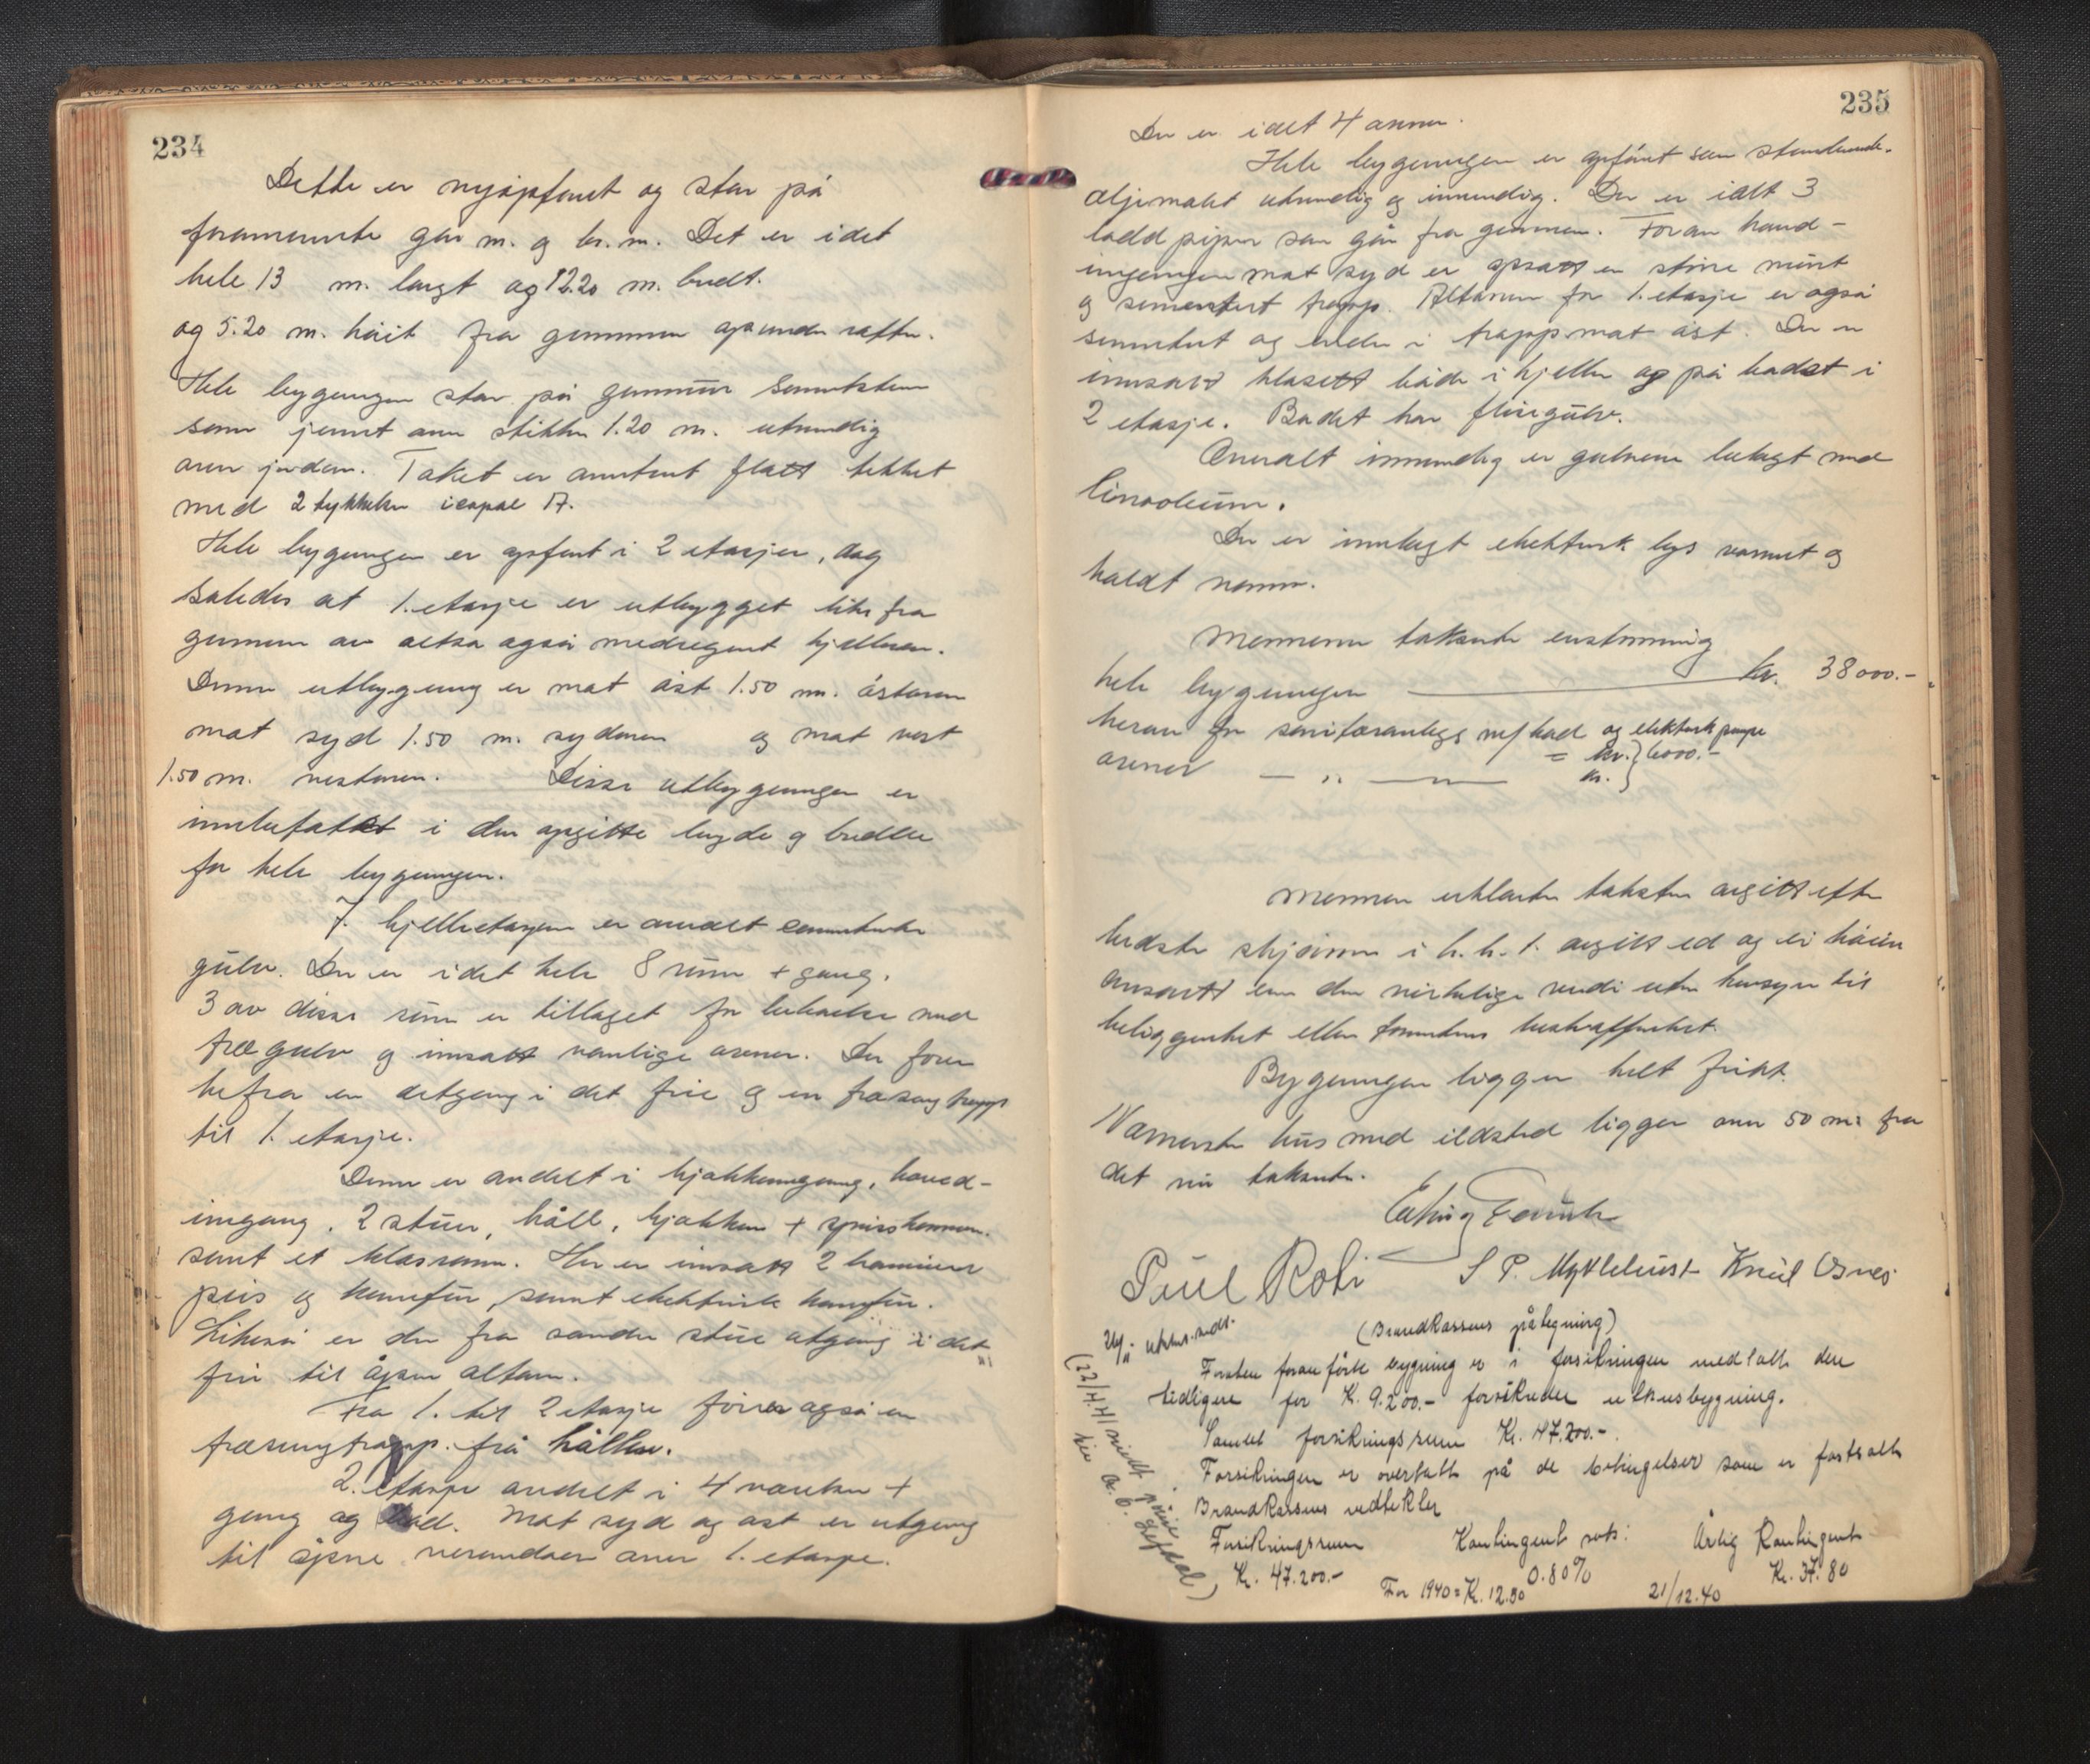 234
Dette er nyopført og står på
forannevnte går m. og br. m. Det er i det
hele 13 m. langt og 12.20 m. bredt.
og 5.20 m. høit fra grunnmur op under rafter.
Hele bygningen står på grunnmur sementsten
som jevnt om stikker 1.20 m. utvendig
over jorden. Taket er omtrent flatt tekket
med 2 tykkelser icopal A.
Hele bygningen er opført i 2 etasjer, dog
således at 1. etasje er utbygget like fra
grunnmur av altså også medregnet kjelleren.
Denne utbygging er mot øst 1.50 m. østover
mot syd 1.50 m. sydover og mot vest
1.50 m. vestover. Disse utbygninger er
innbefattet i den opgitte lengde og bredde
for hele bygningen.
I kjelleretasjen er overalt sementerte
gulv. Der er i det hele 8 rum + gang.
3 av disse rum er tillaget for beboelse med
tregulv og innsatt vanlige ovner. Der fører
herfra en utgang i det frie og en tresving trapp
til 1. etasje.
Denne er avdelt i kjøkkeninngang, hoved-
inngang, 2 stuer, håll, kjøkken + spiskammer
samt et klosrum. Her er innsatt 2 kaminer
peis og komfur, samt elektrisk komfur.
Likeså er der fra søndre stue utgang i det
fri til åpen altan.
Fra 1. til 2 etasje fører også en
tresvingtrapp. fra hållen.
2. etasje avdelt i 4 værelser +
gang og bad. Mot syd og øst er utgang
til åpne verandaer over 1. etasje.
235
Der er i alt 4 ovner.
Hele bygningen er opført som stenderverk.
oljemalet utvendig og innvendig. Der er ialt 3
lødd piper som går fra grunnen. Foran hoved-
inngangen mot syd er opsatt en større muret
og sementert trapp. Altanen for 1. etasje er også
sementert og ender i trapp mot øst. Der er
innsatt klosett både i kjeller og på badet i
2 etasje. Badet har flisegulv.
Overalt innvendig er gulvene belagt med
linoleum.
Der er innlagt elektrisk lys varmt og
koldt vann.
Mennene takserte enstemmig
hele bygningen kr. 38000.-
herav for sanitæranlegg m/ bad og elektrisk pumpe
= kr. } 6000.-
ovner — „ — kr. }
Mennene erklærte taksten avgitt efter
bedste skjønn i h. h. t. avgitt ed og ei høiere
ansatt enn den virkelige verdi uten hensyn til
beliggenhet eller tomtens beskaffenhet.
Bygningen ligger helt fritt.
Nærmeste hus med ildsted ligger over 50 m. fra
det nu takserte.
Paul Roti S P. Myklebust Knut Osnes
(Brandkassens påtegning)
Forsten foranførte bygning er i forsikringen medtatt den
tidligere for Kr. 9.200.- forsikrede uthusbygning.
Samlet forsikringssum Kr. 47.200.-.
Forsikringen er overtatt på de betingelser som er fastsatt
Brandkassens vedtekter
Forsikringssum Kontingent sats: Årlig Kontingent
Kr. 47.200.- 0.80% Kr. 37.80
For 1940 = Kr. 12.50 21/12.40